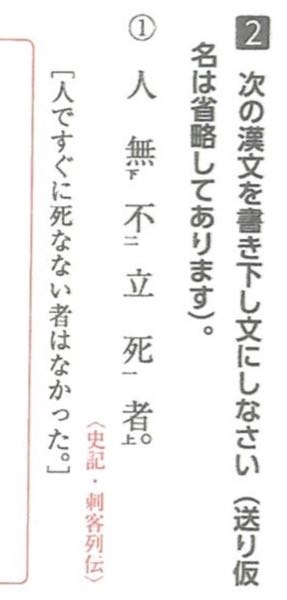 2 次の漢文を書き下し文にしなさい（送り仮
名は省略してあります）。
① 人無下不二立死一者上。
〈史記・刺客列伝〉
［人ですぐに死なない者はなかった。］